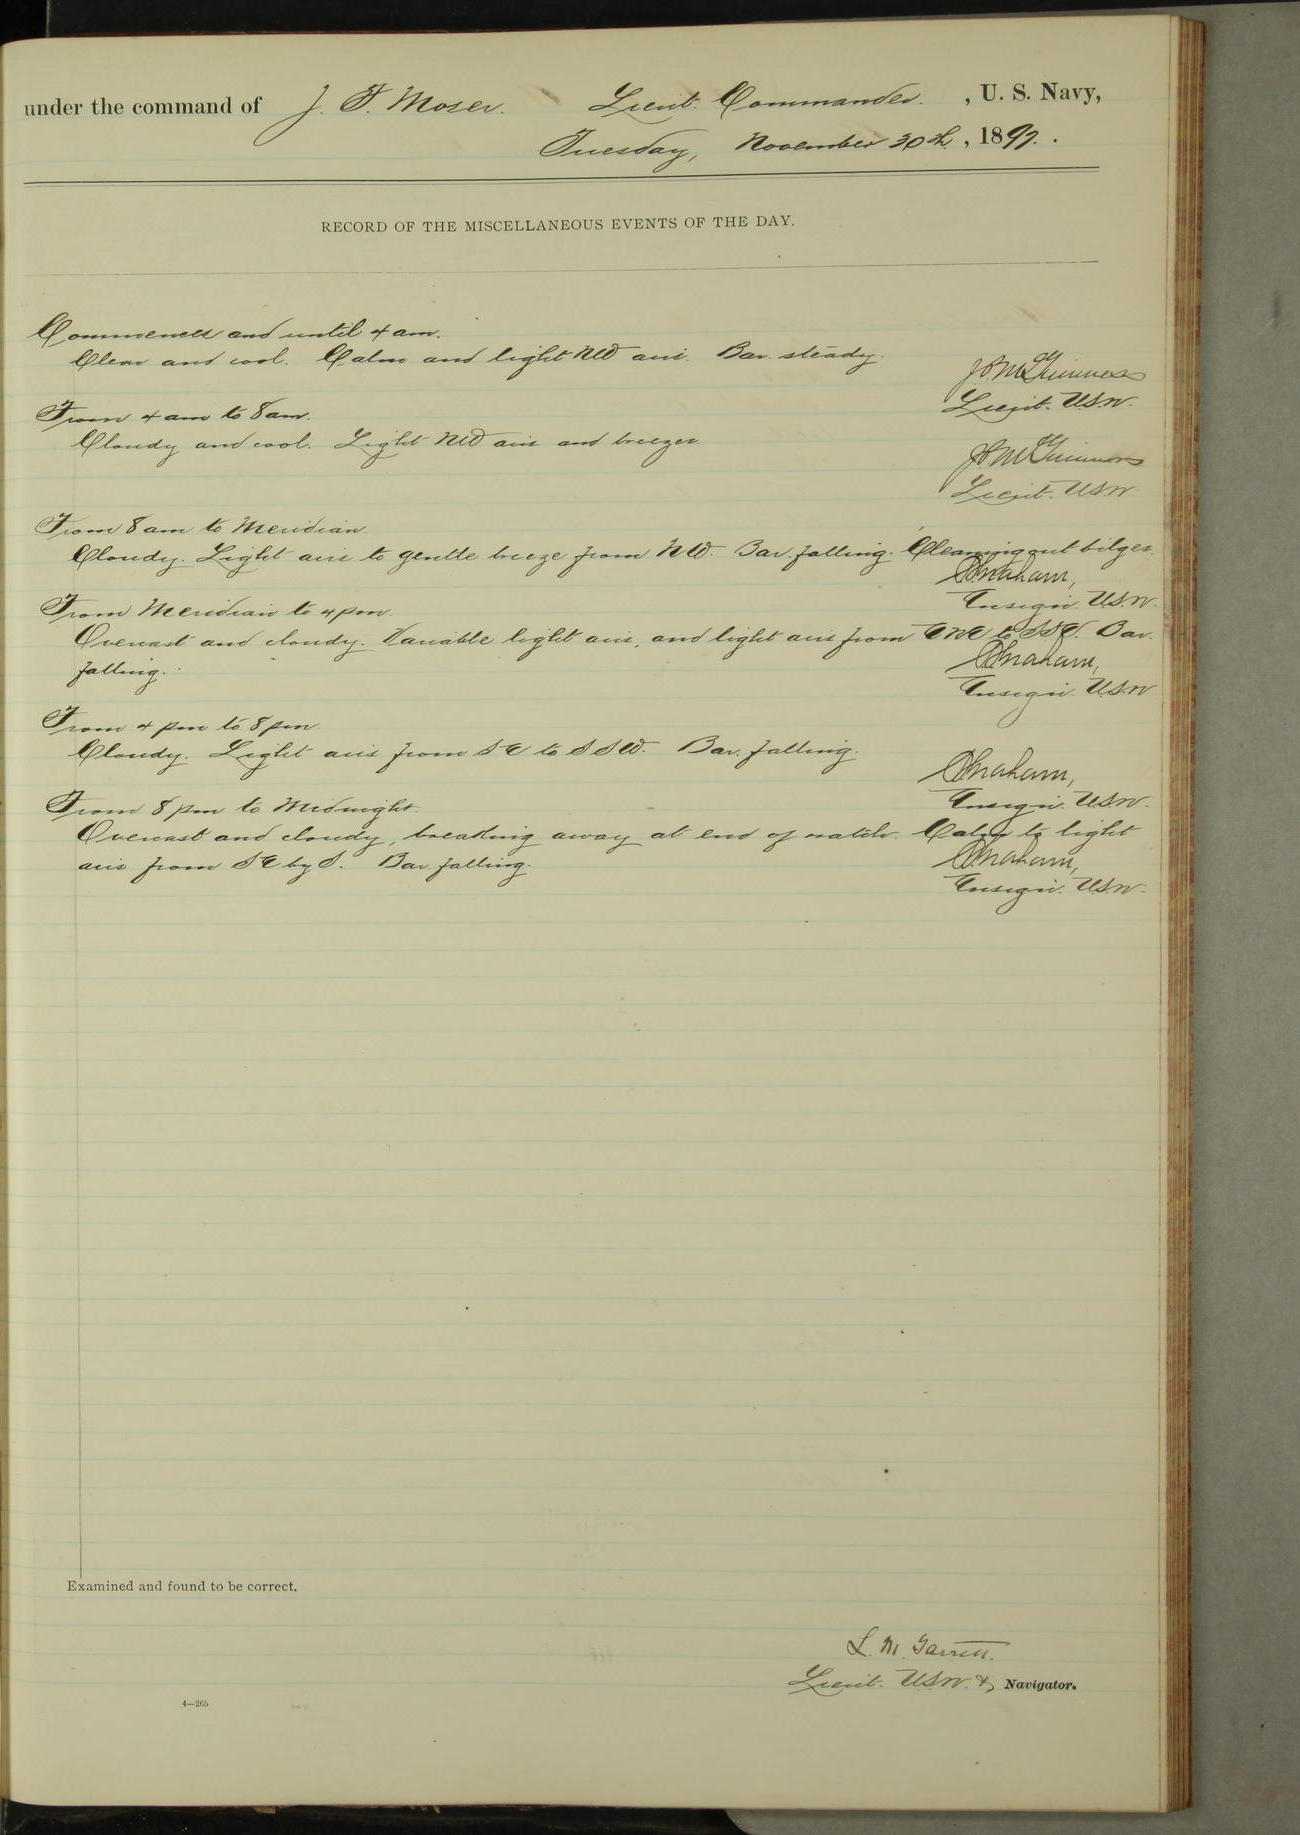 under the command of J. F. Moser. Lieut. Commander. , U. S. Navy,
Tuesday, November 30th, 1897.
RECORD OF THE MISCELLANEOUS EVENTS OF THE DAY.
Commences and until 4 am.
Clear and cool. Calm and light NW airs. Bar. steady.
Lieut. USN.
From 4 am to 8 am.
Cloudy and cool. Light NW airs and breezes
Lieut. USN
From 8 am to Meridian.
Cloudy. Light airs to gentle breeze from NW. Bar. falling. Cleaning out bilges.
Ensign. U.S.N.
From Meridian to 4 pm.
Overcast and cloudy. Variable light airs, and light airs from ENE to SSE. Bar.
falling.
Ensign. U.S.N
From 4 pm to 8 pm
Cloudy. Light airs from SE to SSW. Bar. falling.
Ensign. USN.
From 8 pm to Midnight.
Overcast and cloudy, breaking away at end of watch. Calm to light
airs from SE by S. Bar. falling.
Ensign. U.S.N.
Examined and found to be correct.
L. M. Garrett.
Lieut. USN. &, Navigator.
4—265